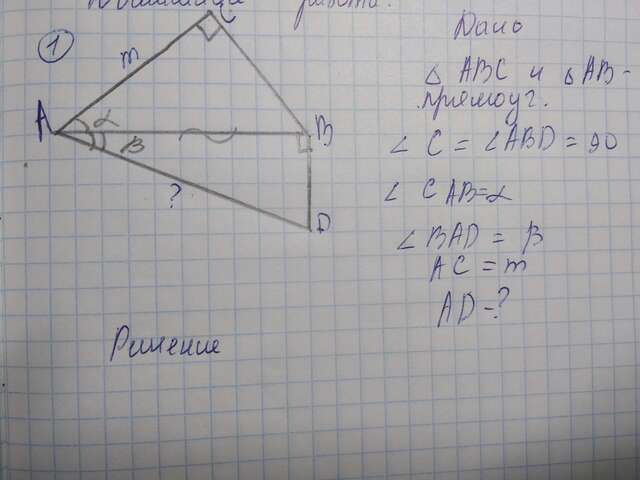 работа.
1
C
m
A
α
β
B
?
D
Дано
△ ABC и △ AB-
прямоуг.
∠ C = ∠ABD = 90
∠ CAB=α
∠ BAD = β
AC = m
AD-?
Ришение